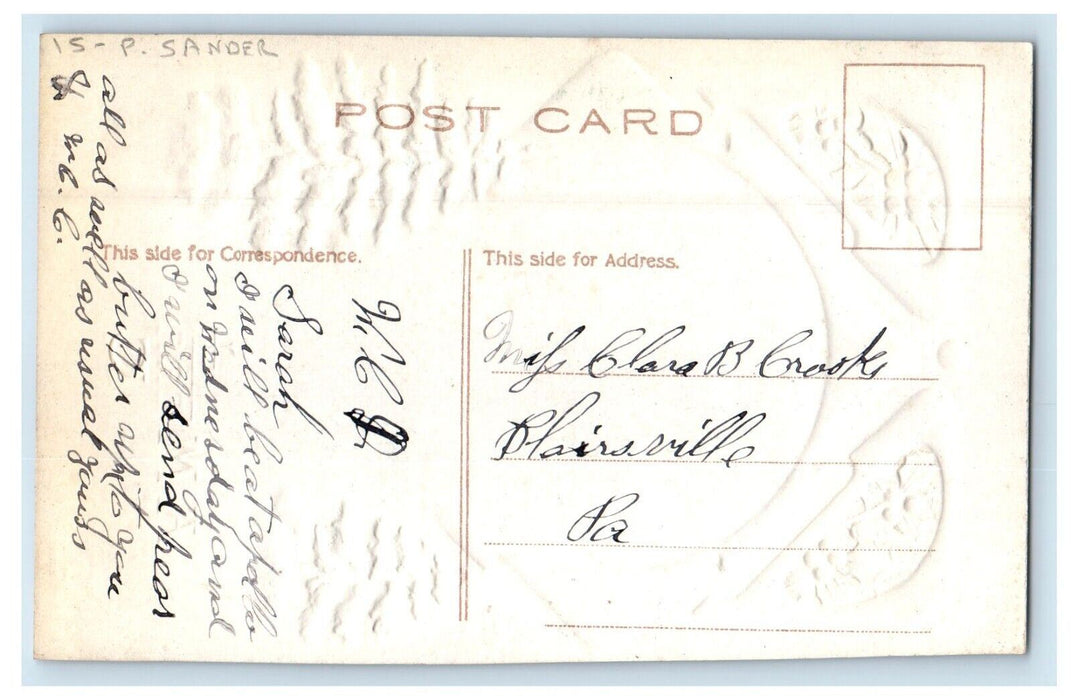 15- P. SANDER
POST CARD
This side for Correspondence.
This side for Address.
Miss Clara B Crooks
Blairsville
Pa
Sarah
I will be at apollo
on Wednesday and
I will send pear
butter up to you
all as well as usual yours